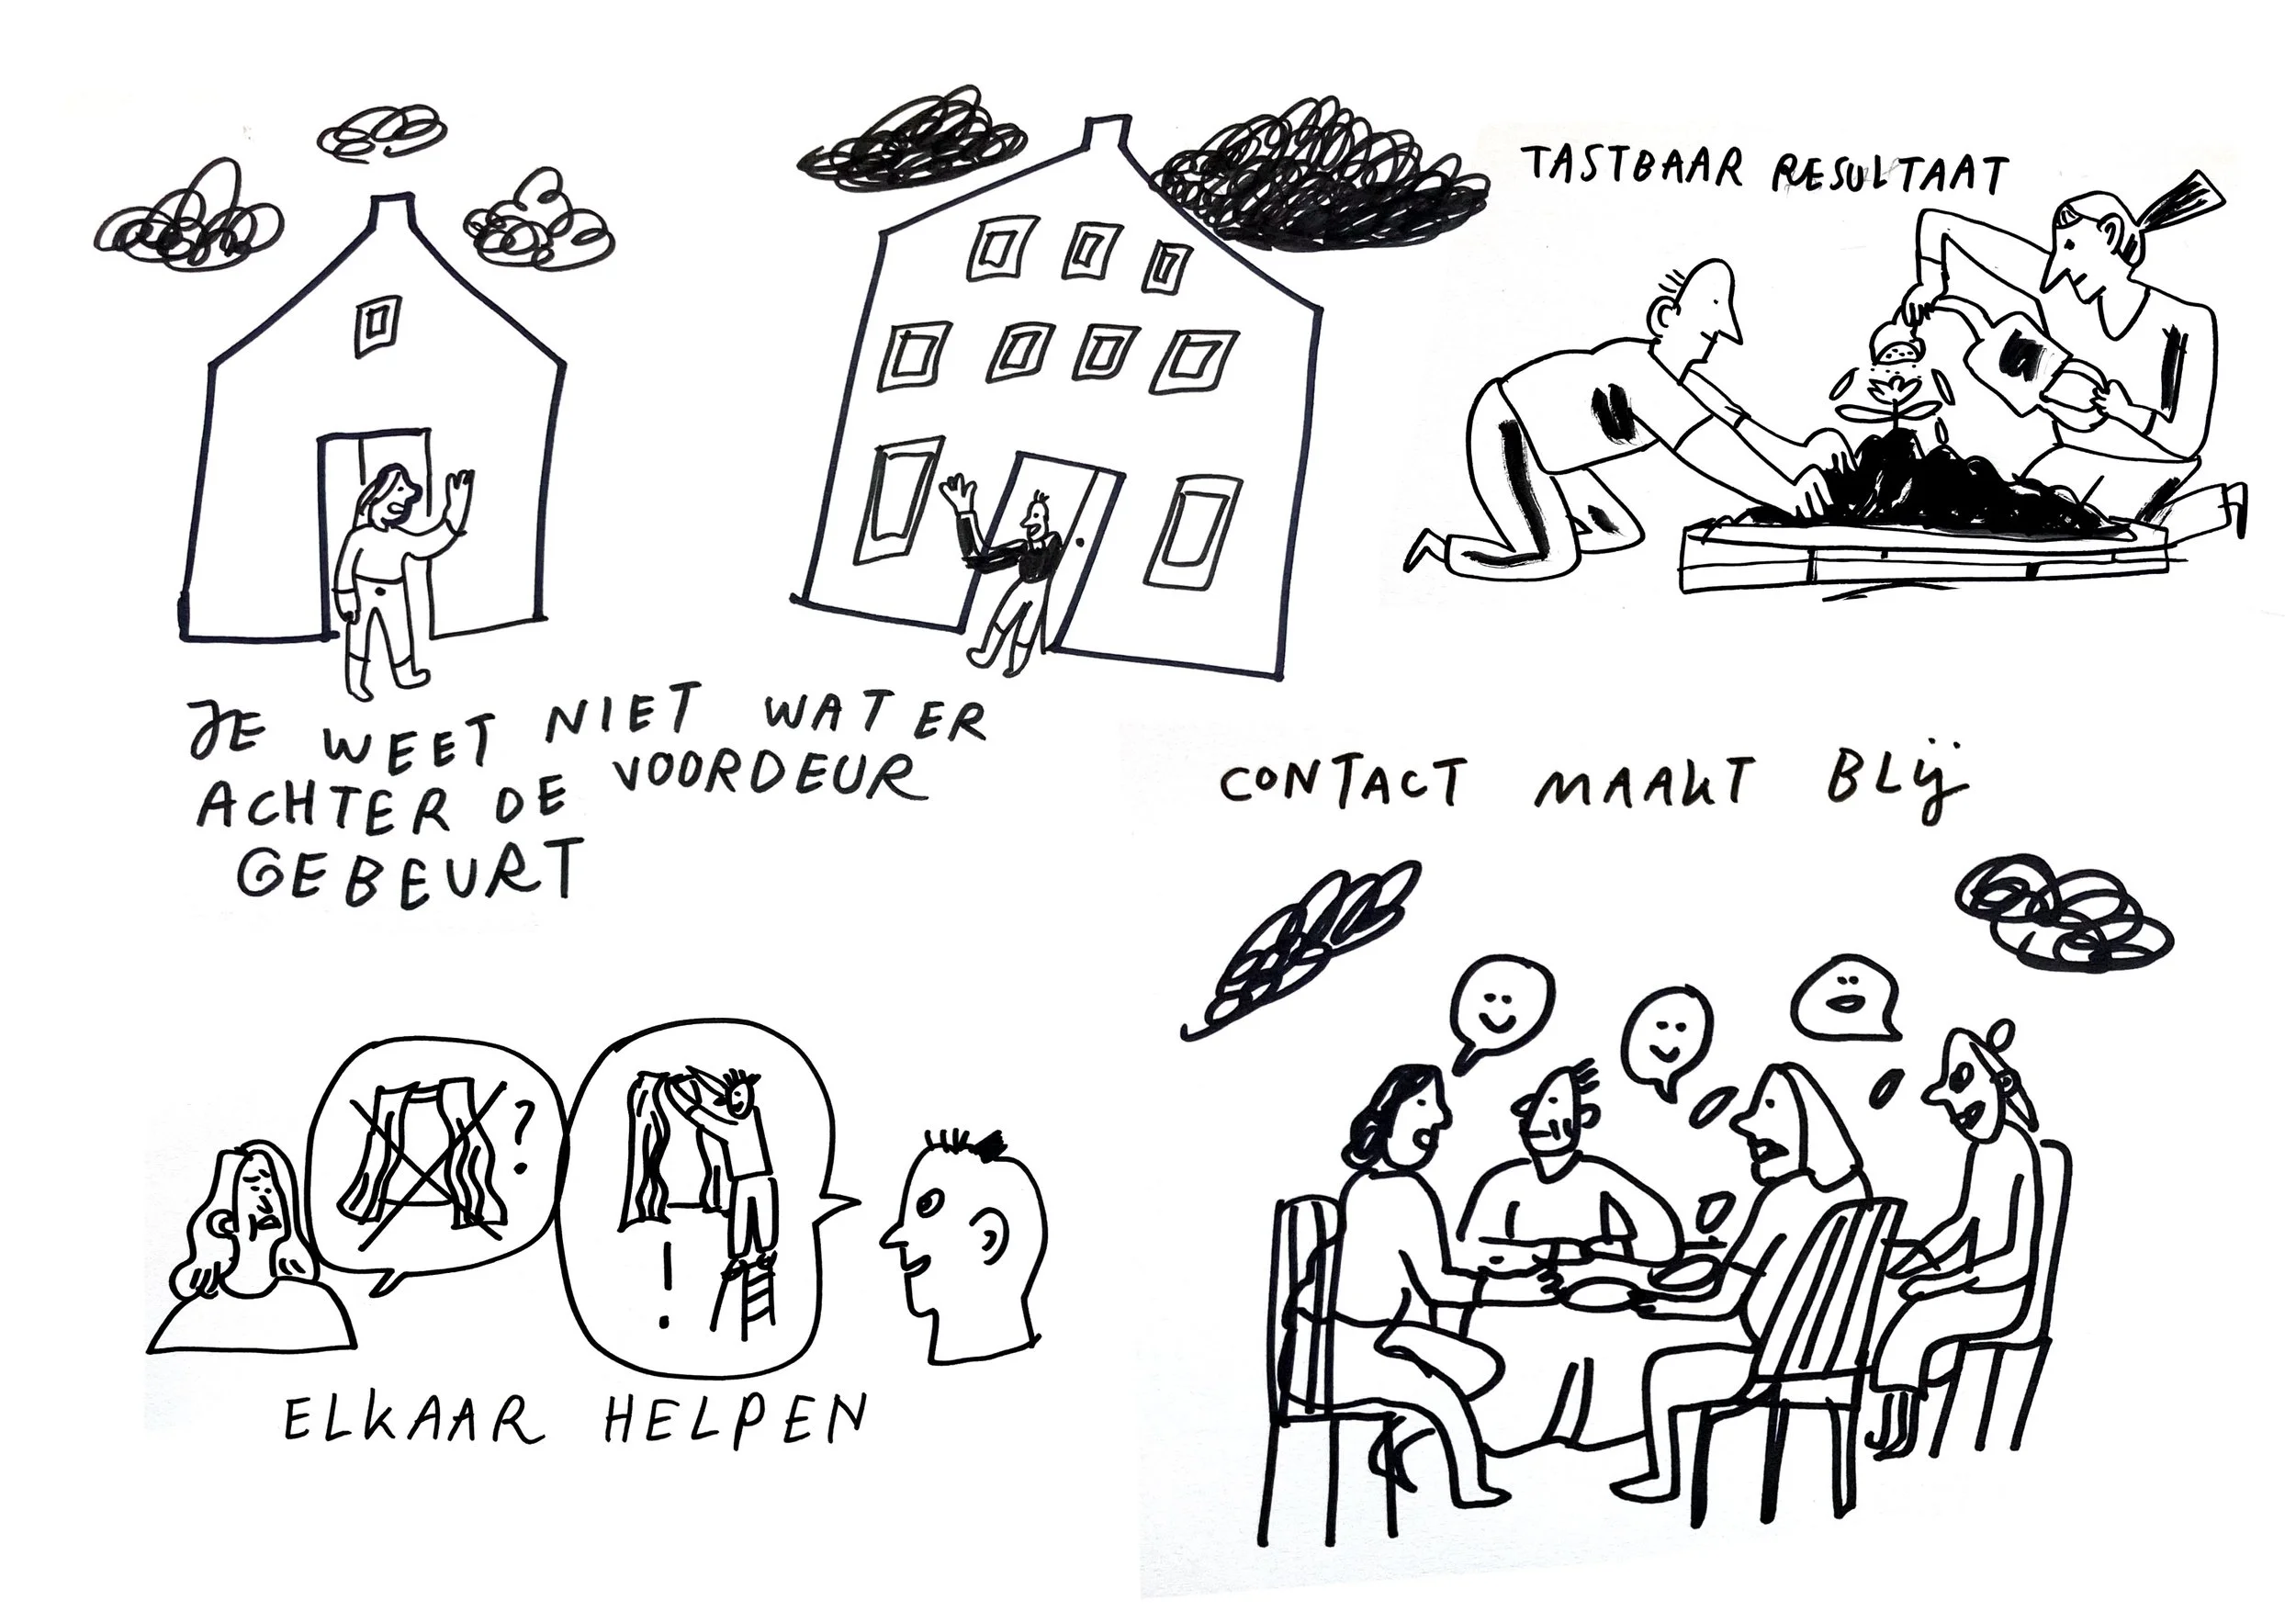 TASTBAAR RESULTAAT
JE WEET NIET WAT ER
ACHTER DE VOORDEUR
GEBEURT
CONTACT MAAKT BLIJ
?
!
ELKAAR HELPEN